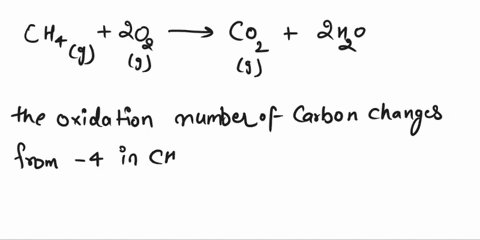 CH₄(g) + 2O₂(g) ⟶ CO₂(g) + 2H₂O
the oxidation number of Carbon changes
from -4 in CH